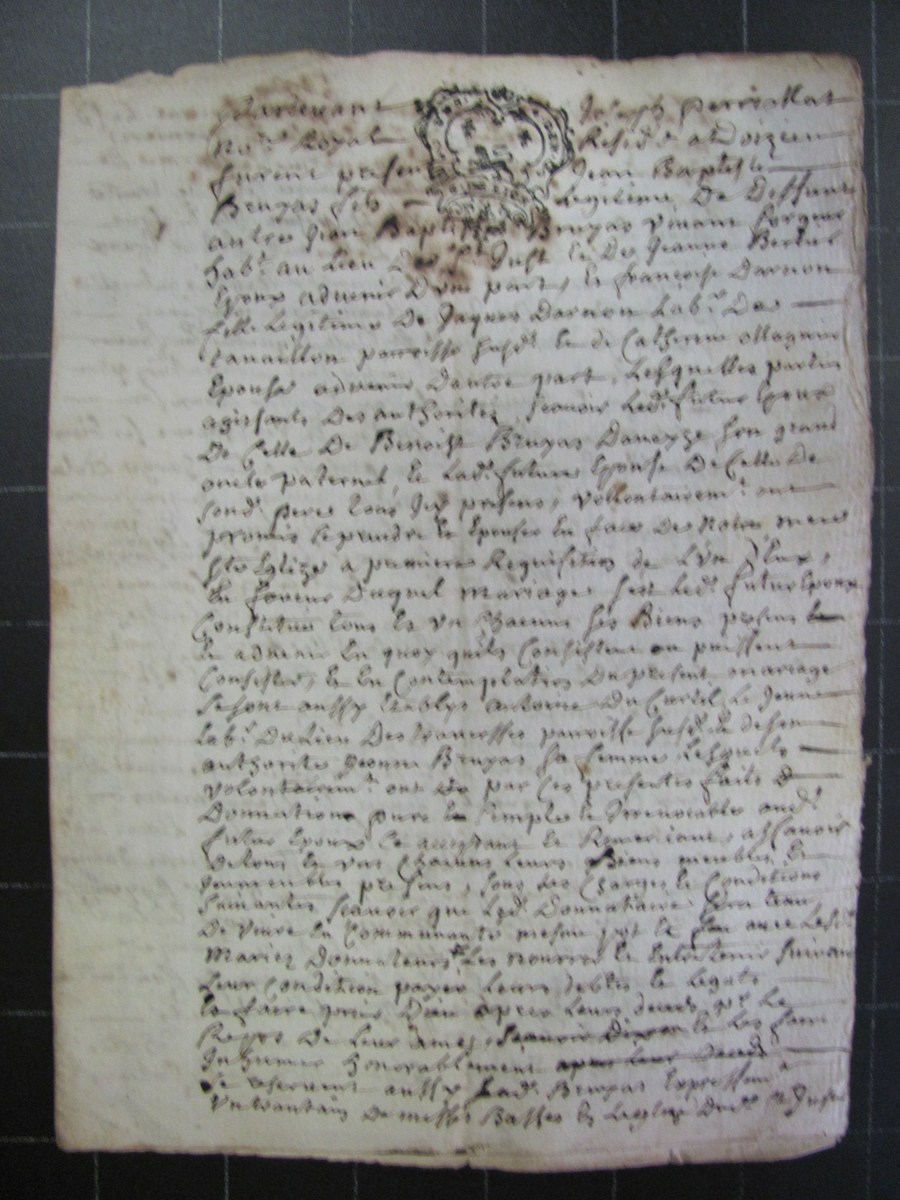 Pardevant Joseph Perretlat
No.re Royal Resid.t a d'oizieu
furent present Jean Baptiste
Bruyas fils Legitime De Deffunt
autre Jean Baptiste Bruyas vivant
hab.t au Lieu De S.t Just et De Jeanne
Epoux advenir D'une part, et francoise Darnon
fille Legitime De Jaques Darnon Lab.r De
tavaillon parroisse susd. et de Catherine
Epouse advenir Dautre part, Lesquelles parties
agissants Des authorites, scavoir Led. futur Epoux
De Celle De Benoist Bruyas son grand
oncle paternel, et Lad. future Epouse De Celle De
sond. pere tous Icy presens, vollontairem.t ont
promis se prendre et Epouser En face De Notre mere
s.te Eglize a premiere Requisition de L'un D'eux,
En faveur Duquel Mariage Led. futur Epoux
Constitue tous Et un Chacuns ses Biens presens
et advenir En quoy quils Consistent ou puissent
Consister, et En Contemplation Du present mariage
se sont aussy Etablys antoine Du Curtil Le Jeune
Lab.r Du Lieu Des parroisse susd. et de son
authorite Jeanne Bruyas sa femme Lesquels
volontairem.t ont par Ces presentes faits
Donnation pure et simple et Irrevocable aud.
futur Epoux Ce acceptant et Remerciant, a scavoir
De tous Et uns Chacuns Leurs Biens meubles et
Immeubles presens, sous Les Charges et Conditions
suivantes scavoir que Led. Donnataire sera tenu
De vivre En Communauté mesme pot et feu avec Lesd.
Mariez Donnateurs Les nourrir et Entretenir suivant
Leur Condition payer Leurs debtes et Legats
et faire prier Dieu apres Leurs deceds p.r Le
Repos De Leurs ames, et Les faire
Inhumer honnorablement apres Leur Deceds
se reservent aussy Lad. Bruyas Expressem.t
De messes Basses En Leglize Dud. S.t Just